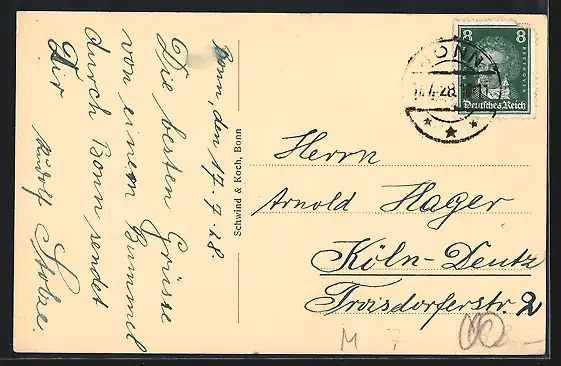 Bonn, den 17.7.28
Die besten Grüsse
von einem Bummel
durch Bonn sendet
Dir
Rudolf Stolze.
Schwind & Koch, Bonn
8 8
BEETHOVEN
Deutsches Reich
BONN
Herrn
Arnold Hager
Köln-Deutz
Troisdorferstr. 2
M 7